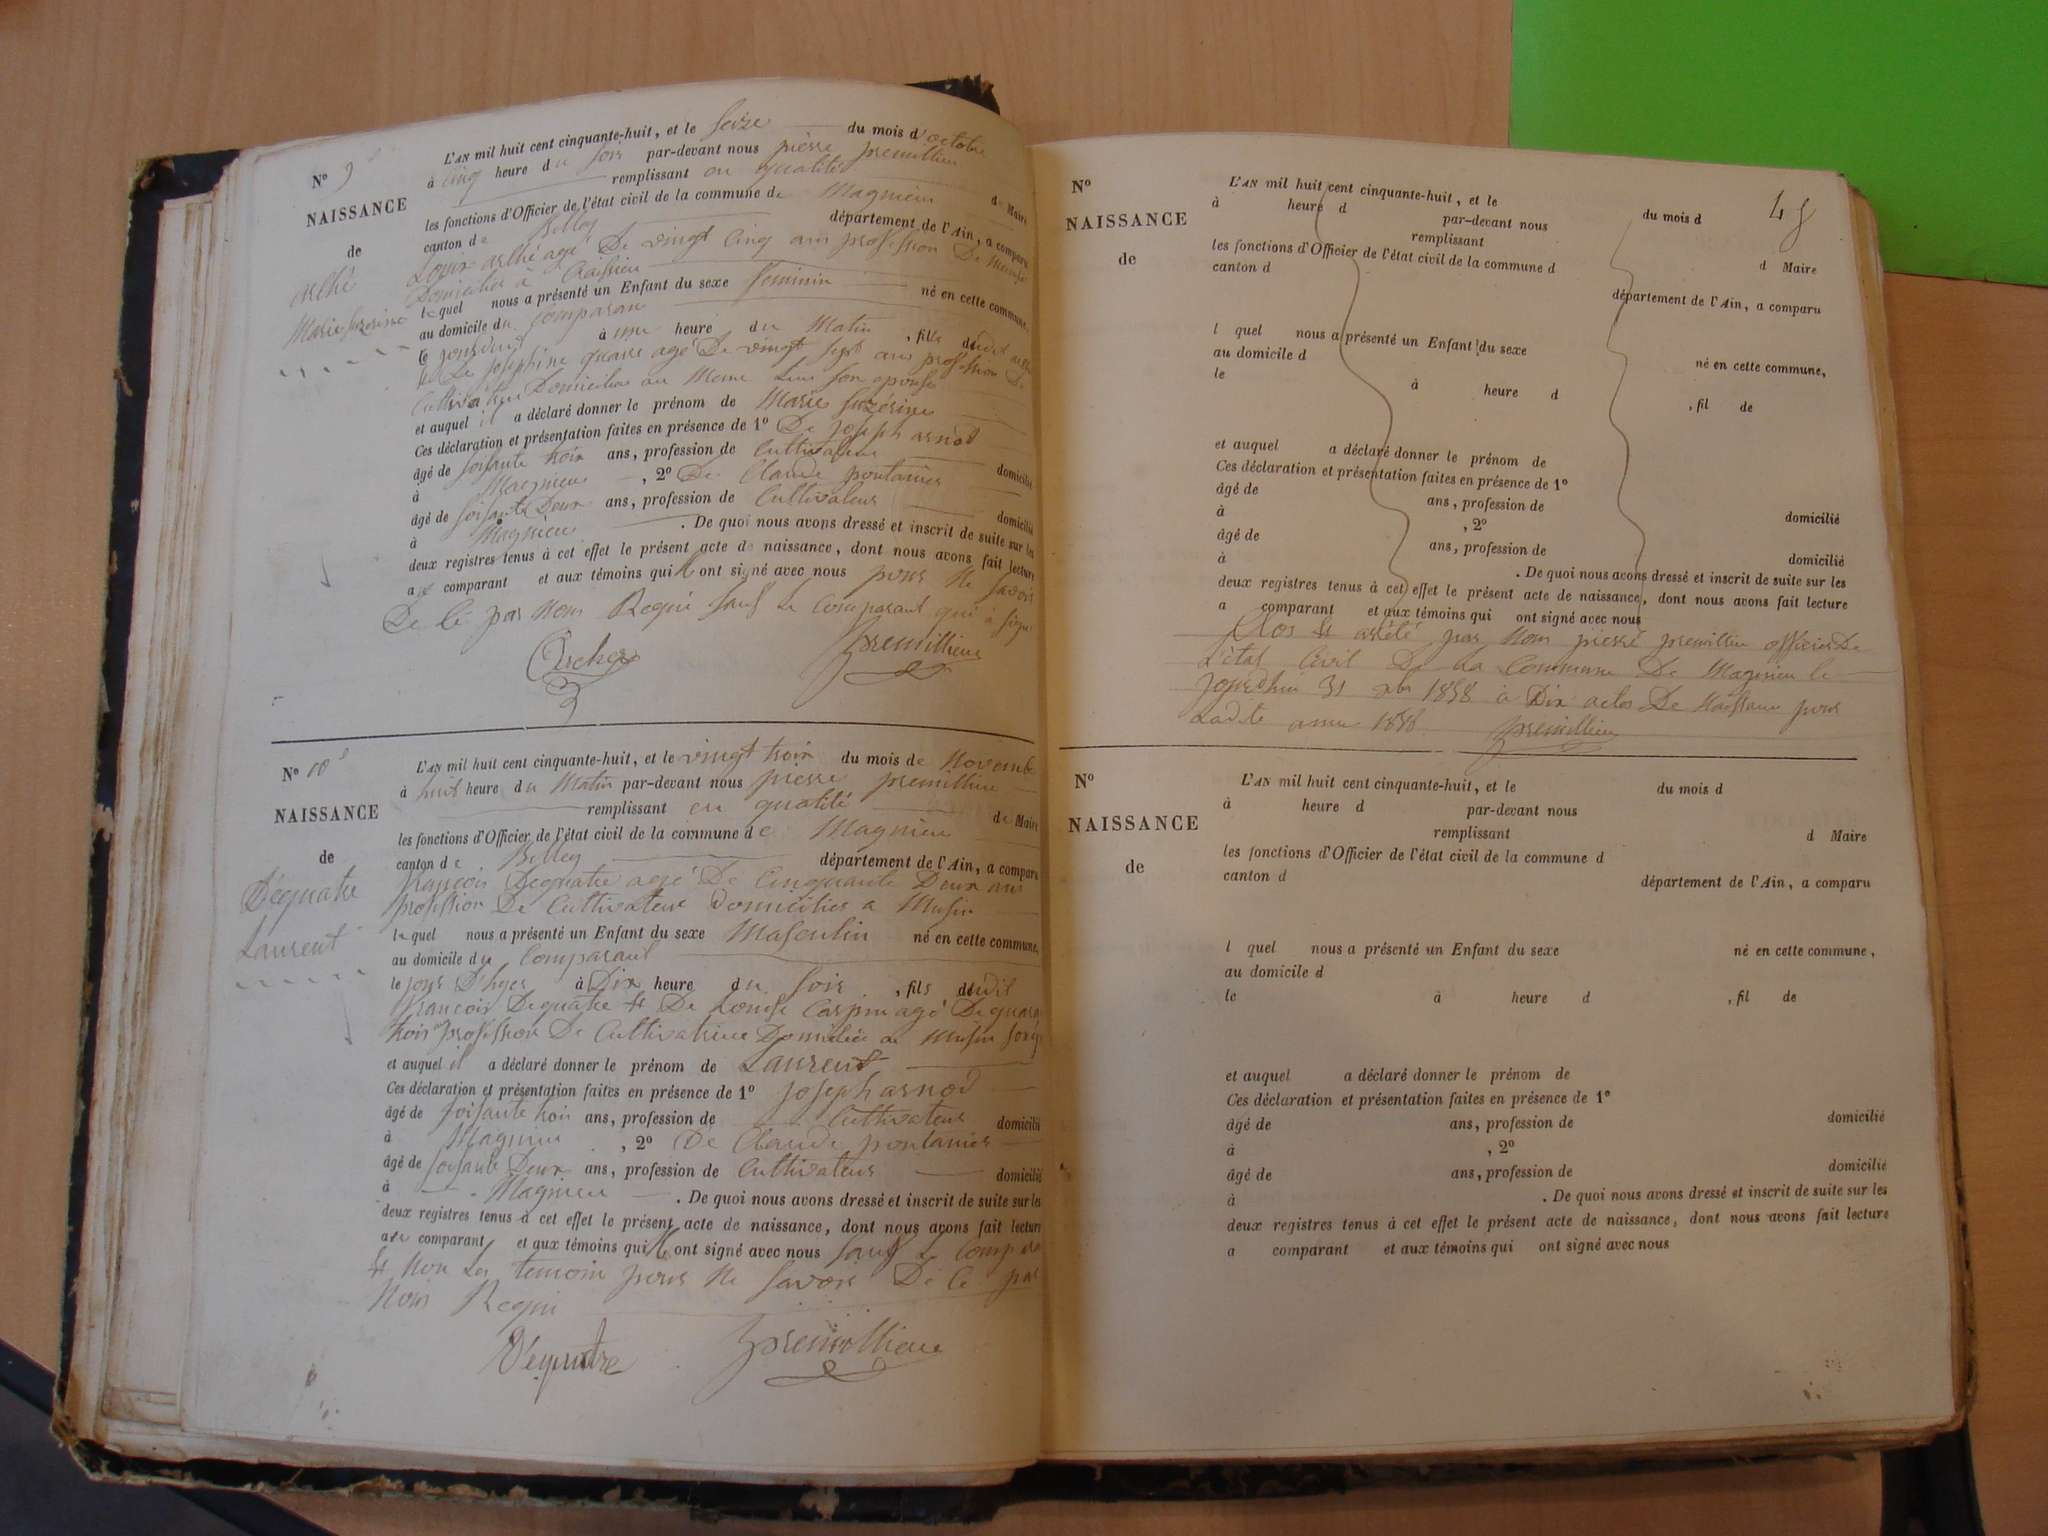 N° 9
NAISSANCE
de
arthé
Marie Suzerine
L'AN mil huit cent cinquante-huit, et le seize du mois d'octobre
à cinq heure du soir par-devant nous pierre premillieu
remplissant en qualité de Maire
les fonctions d'Officier de l'état civil de la commune de Magnieu
canton de Belley département de l'Ain, a comparu
Louis arthé agé De vingt cinq ans profession De
Domicilié à
lequel nous a présenté un Enfant du sexe feminin né en cette commune,
au domicile du comparant
le jourdhui à une heure du Matin, fille dudit
De josephine agé De vingt sept ans profession De
Cultivatrice Domicilié au Meme Lieu son epouse
et auquel il a déclaré donner le prénom de Marie Suzérine
Ces déclaration et présentation faites en présence de 1° De joseph arnod
âgé de soisante trois ans, profession de Cultivateur domicilié
à Magnieu, 2° De Claude pontanier
âgé de soisante Deux ans, profession de Cultivateur domicilié
à Magnieu. De quoi nous avons dressé et inscrit de suite sur les
deux registres tenus à cet effet le présent acte de naissance, dont nous avons fait lecture
au comparant et aux témoins qui ont signé avec nous pour Ne savoir
De Ce par Nous Requi sauf Le Comparant qui à signé
premillieu
N° 10
NAISSANCE
de
Déquatre
Laurent
L'AN mil huit cent cinquante-huit, et le vingt trois du mois de Novembre
à huit heure du Matin par-devant nous pierre premillieu
remplissant en qualité de Maire
les fonctions d'Officier de l'état civil de la commune de Magnieu
canton de Belley département de l'Ain, a comparu
françois Dequatre agé De Cinquante Deux ans
profession De Cultivateur Domicilier a Musin
lequel nous a présenté un Enfant du sexe Masculin né en cette commune,
au domicile du Comparant
le jour D'hyer à Dix heure du soir, fils dudit
françois Dequatre et De Louise Carpin agé De quarante
trois profession De Cultivatrice Domicilié a Musin
et auquel il a déclaré donner le prénom de Laurent
Ces déclaration et présentation faites en présence de 1° joseph arnod
âgé de soisante trois ans, profession de Cultivateur domicilié
à Magnieu, 2° De Claude pontanier
âgé de soisante Deux ans, profession de Cultivateur domicilié
à Magnieu. De quoi nous avons dressé et inscrit de suite sur les
deux registres tenus à cet effet le présent acte de naissance, dont nous avons fait lecture
au comparant et aux témoins qui ont signé avec nous sauf Le Compara
et Non Les temoin pour Ne savoir De Ce par
Nous Requi
Dequatre premillieu
48
N°
NAISSANCE
de
L'AN mil huit cent cinquante-huit, et le du mois d
à heure d par-devant nous
remplissant d Maire
les fonctions d'Officier de l'état civil de la commune d
canton d département de l'Ain, a comparu
l quel nous a présenté un Enfant du sexe né en cette commune,
au domicile d
le à heure d , fil de
et auquel a déclaré donner le prénom de
Ces déclaration et présentation faites en présence de 1°
âgé de ans, profession de domicilié
à , 2°
âgé de ans, profession de domicilié
à . De quoi nous avons dressé et inscrit de suite sur les
deux registres tenus à cet effet le présent acte de naissance, dont nous avons fait lecture
a comparant et aux témoins qui ont signé avec nous
Clos et arrêté par Nous pierre premillieu officier De
L'état Civil De La Commune De Magnieu le
jourdhui 31 xbr 1858 à Dix actes De Naissance pour
Ladite annee 1858 premillieu
N°
NAISSANCE
de
L'AN mil huit cent cinquante-huit, et le du mois d
à heure d par-devant nous
remplissant d Maire
les fonctions d'Officier de l'état civil de la commune d
canton d département de l'Ain, a comparu
l quel nous a présenté un Enfant du sexe né en cette commune,
au domicile d
le à heure d , fil de
et auquel a déclaré donner le prénom de
Ces déclaration et présentation faites en présence de 1°
âgé de ans, profession de domicilié
à , 2°
âgé de ans, profession de domicilié
à . De quoi nous avons dressé et inscrit de suite sur les
deux registres tenus à cet effet le présent acte de naissance, dont nous avons fait lecture
a comparant et aux témoins qui ont signé avec nous